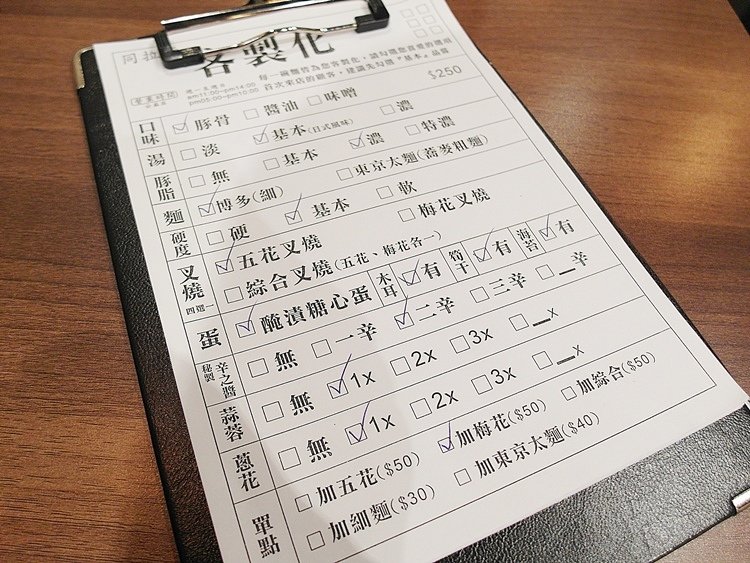 客製化
每一碗麵皆為您客製化，請勾選您喜愛的選項
首次來店的顧客，建議先勾選『基本』品嚐
營業時間
am11:00~pm14:00
pm05:00~pm10:00
$250
口味 豚骨 醬油 味噌
湯 淡 基本(日式風味) 濃
豚脂 無 基本 濃 特濃
麵 博多(細) 東京太麵(蕎麥粗麵)
硬度 硬 基本 軟
叉燒 四選一 五花叉燒 梅花叉燒
綜合叉燒(五花、梅花各一)
蛋 醃漬糖心蛋 木耳 有 筍干 有 海苔 有
秘製 辛之醬 無 一辛 二辛 三辛 __辛
蒜蓉 無 1x 2x 3x __x
蔥花 無 1x 2x 3x __x
單點 加五花($50) 加梅花($50) 加綜合($50)
加細麵($30) 加東京太麵($40)